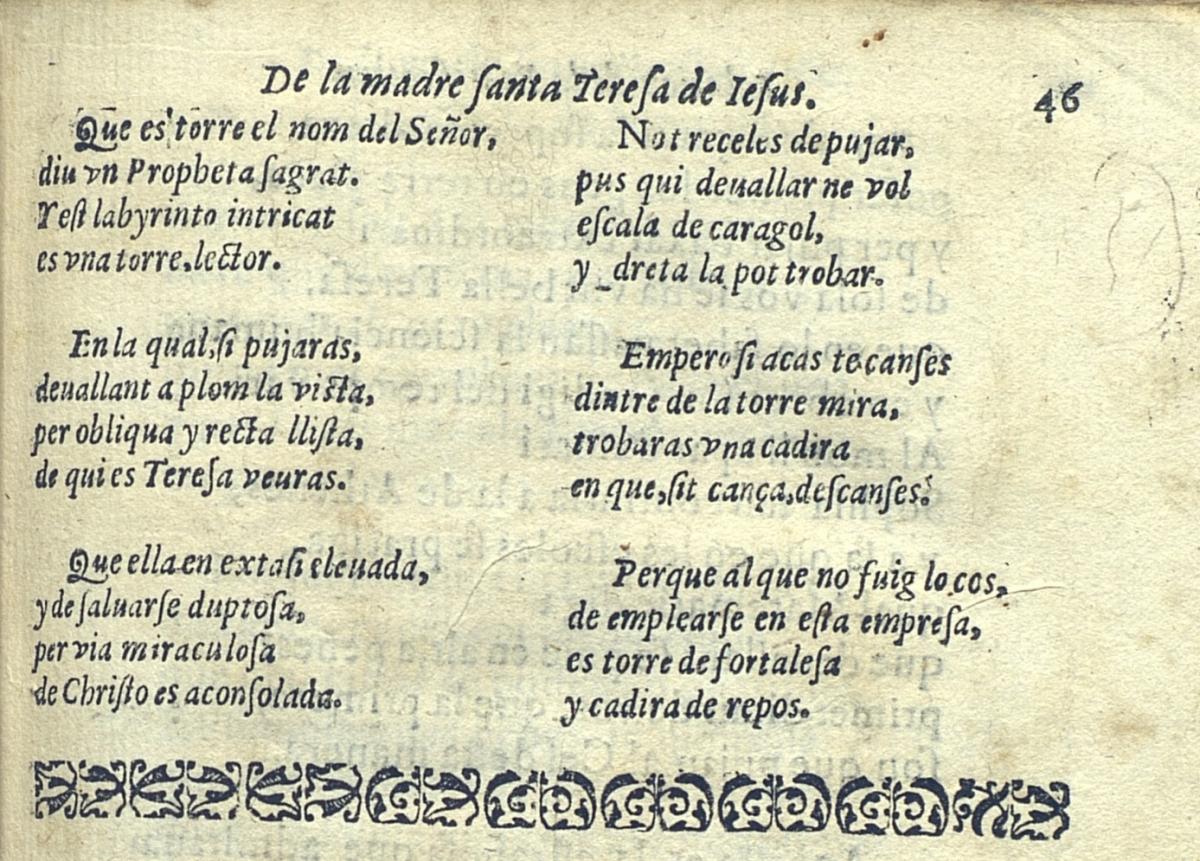 De la madre ſanta Tereſa de Ieſus. 46
Que es torre el nom del Señor,
diu vn Propheta ſagrat.
Y eſt labyrinto intricat
es vna torre, lector.
En la qual, ſi pujaras,
deuallant a plom la viſta,
per obliqua y recta lliſta,
de qui es Tereſa veuras.
Que ella en extaſi eleuada,
y de ſaluarſe duptoſa,
per via miraculoſa
de Chriſto es aconſolada.
No t receles de pujar,
pus qui deuallar ne vol
eſcala de caragol,
y dreta la pot trobar.
Empero ſi acas te canſes
dintre de la torre mira,
trobaras vna cadira
en que, ſit cança, deſcanſes.
Perque al que no fuig lo cos,
de emplearſe en eſta empreſa,
es torre de fortaleſa
y cadira de repos.